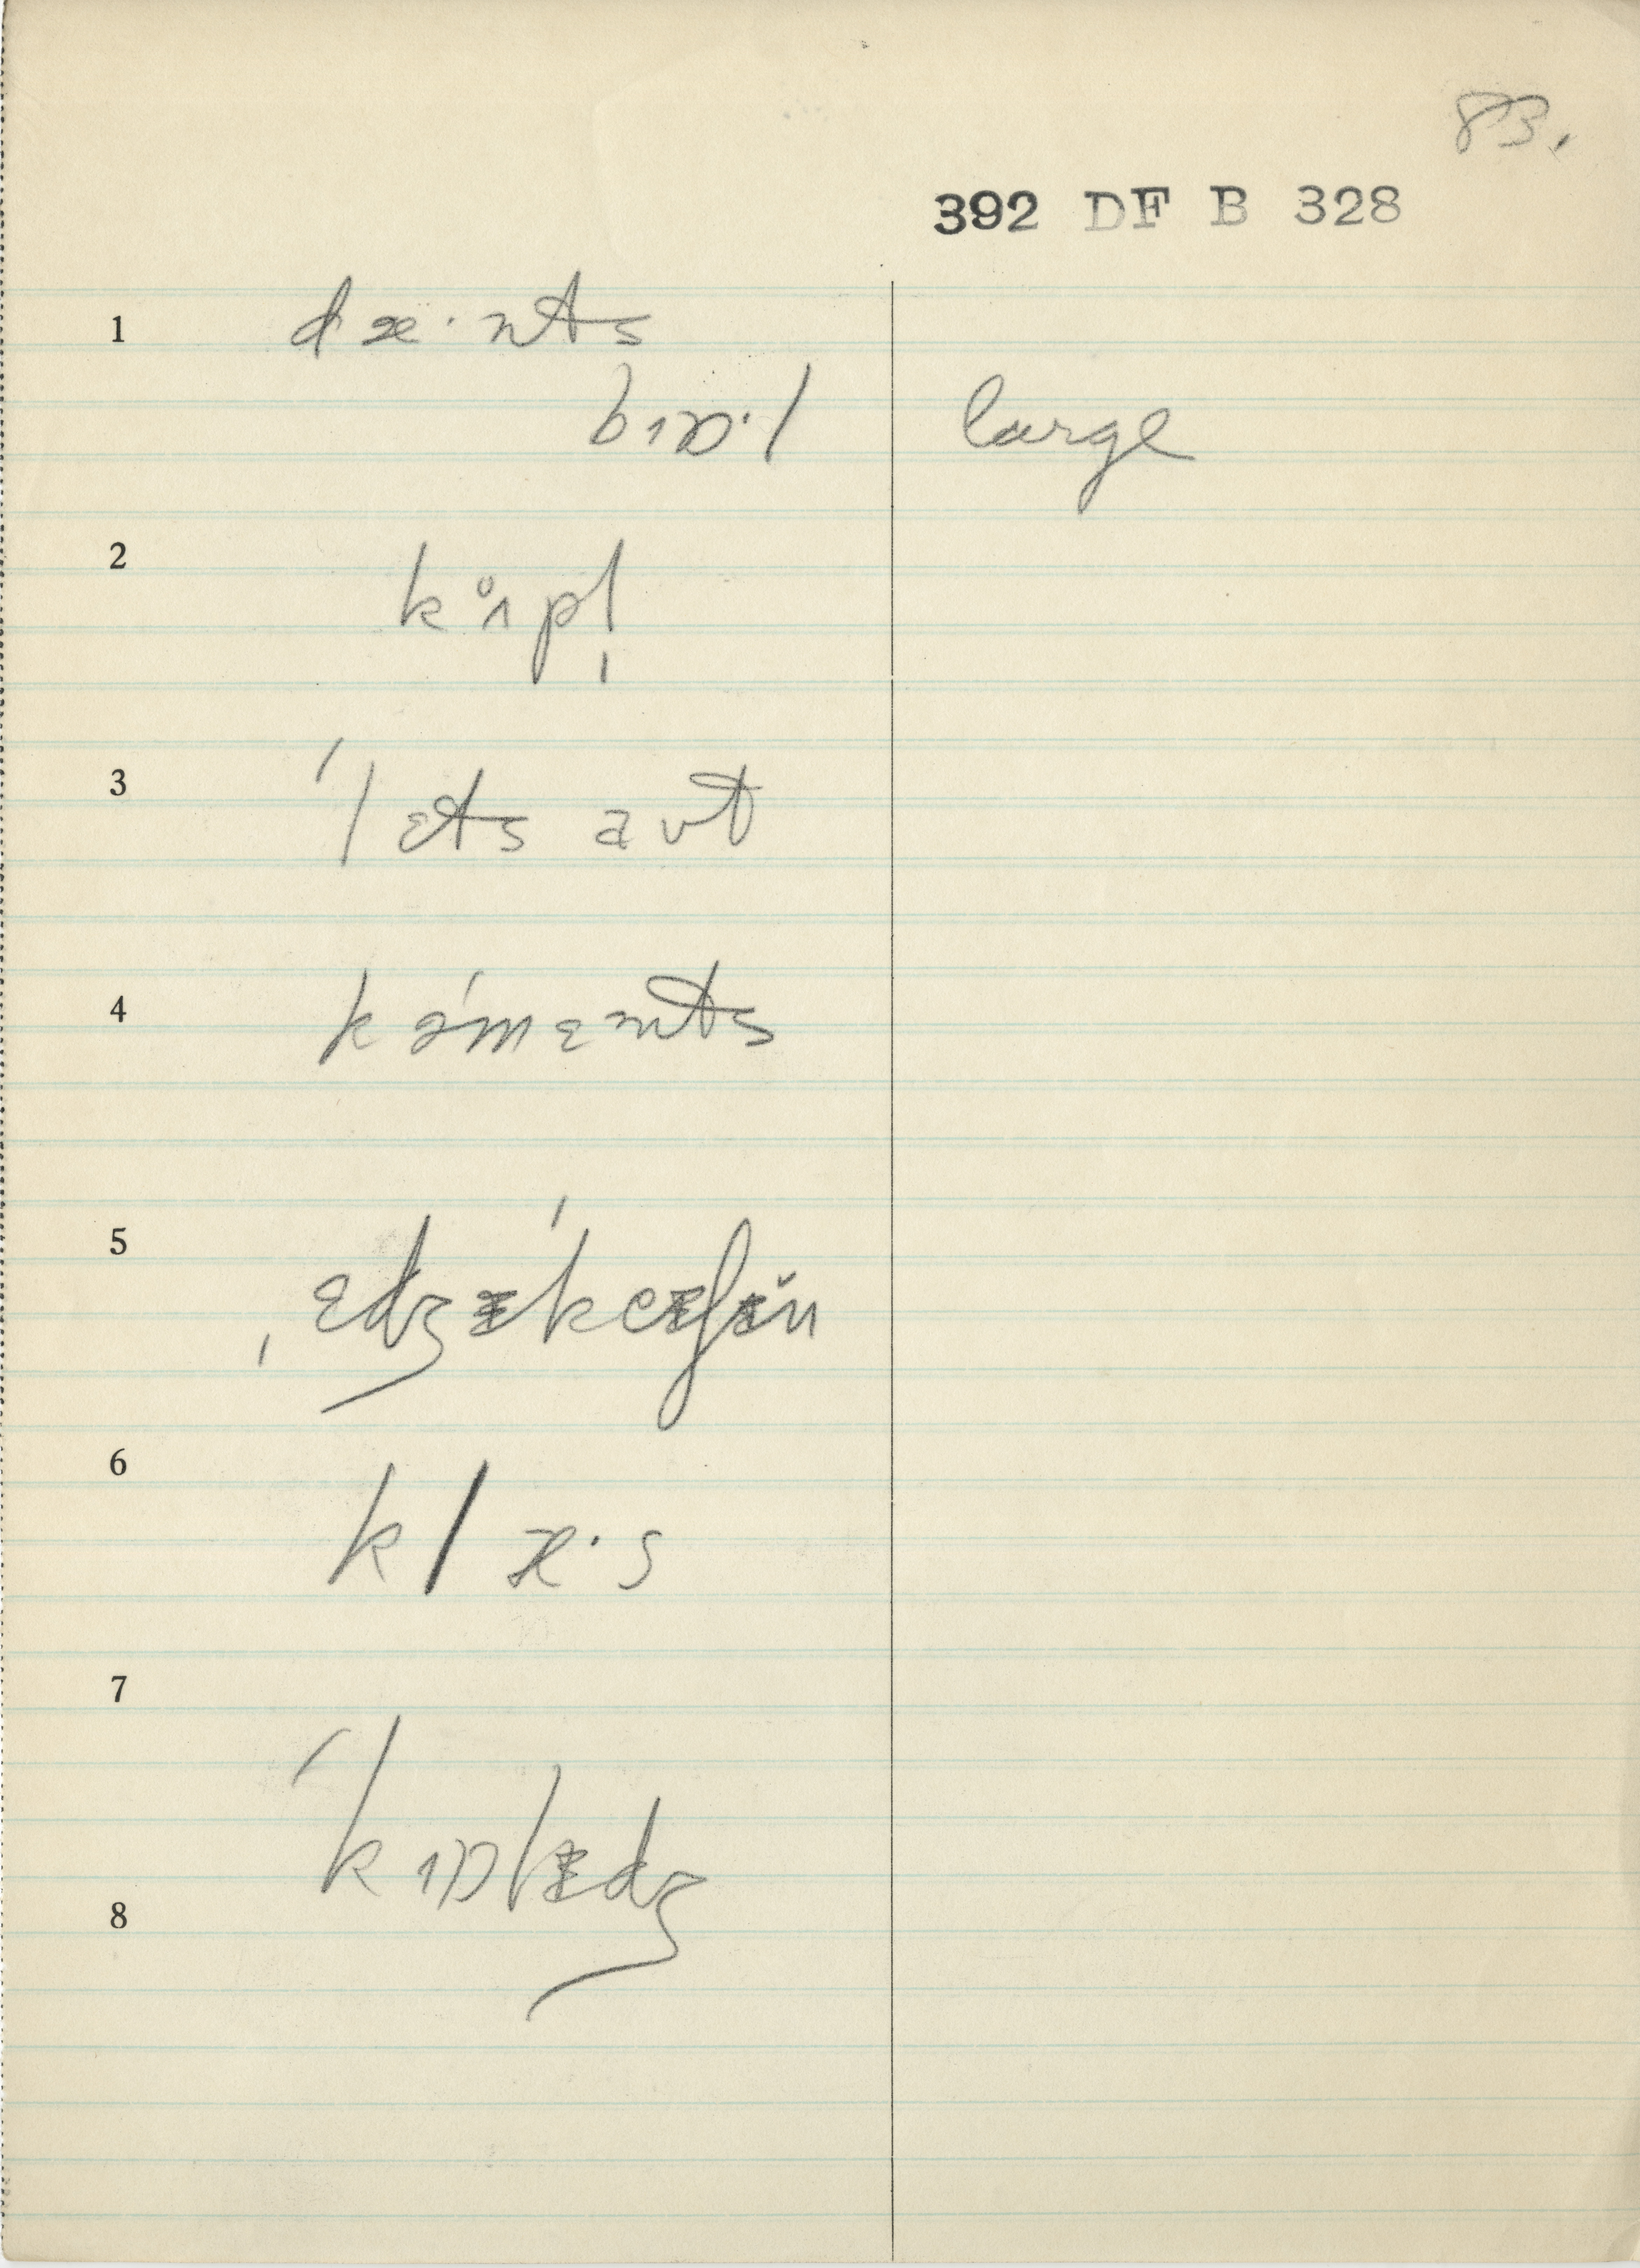 83.
392 DF B 328
1 dæ·nts
bɪɒ·l large
2 kɪ̊pl̩
3 ˈlɛts aʊt
4 kəˈmɛnts
5 ˌɛdʒᵻˈkeᵻʃᵻ̆n
6 klæ·s
7
ˈkɒlᵻdʒ
8